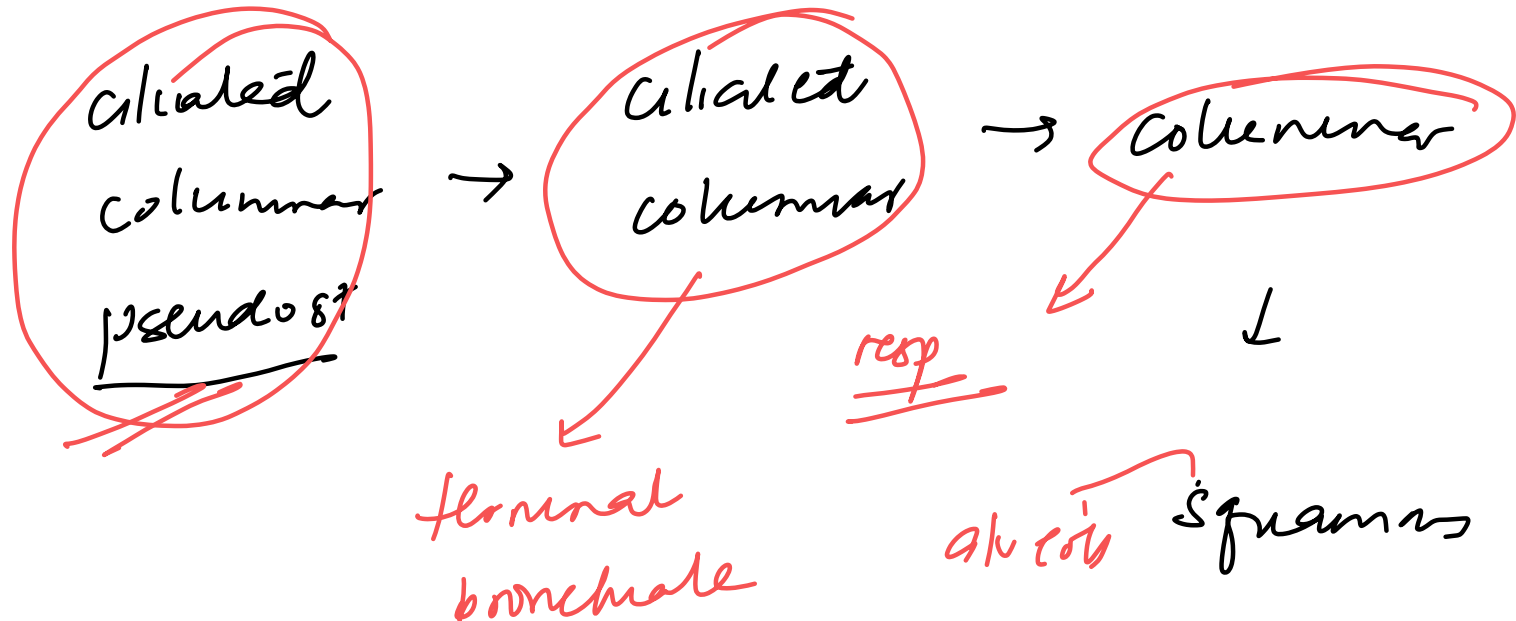 ciliated
columnar
pseudost
→
ciliated
columnar
→
columnar
↓
resp
terminal
bronchiole
alveoli
squamous